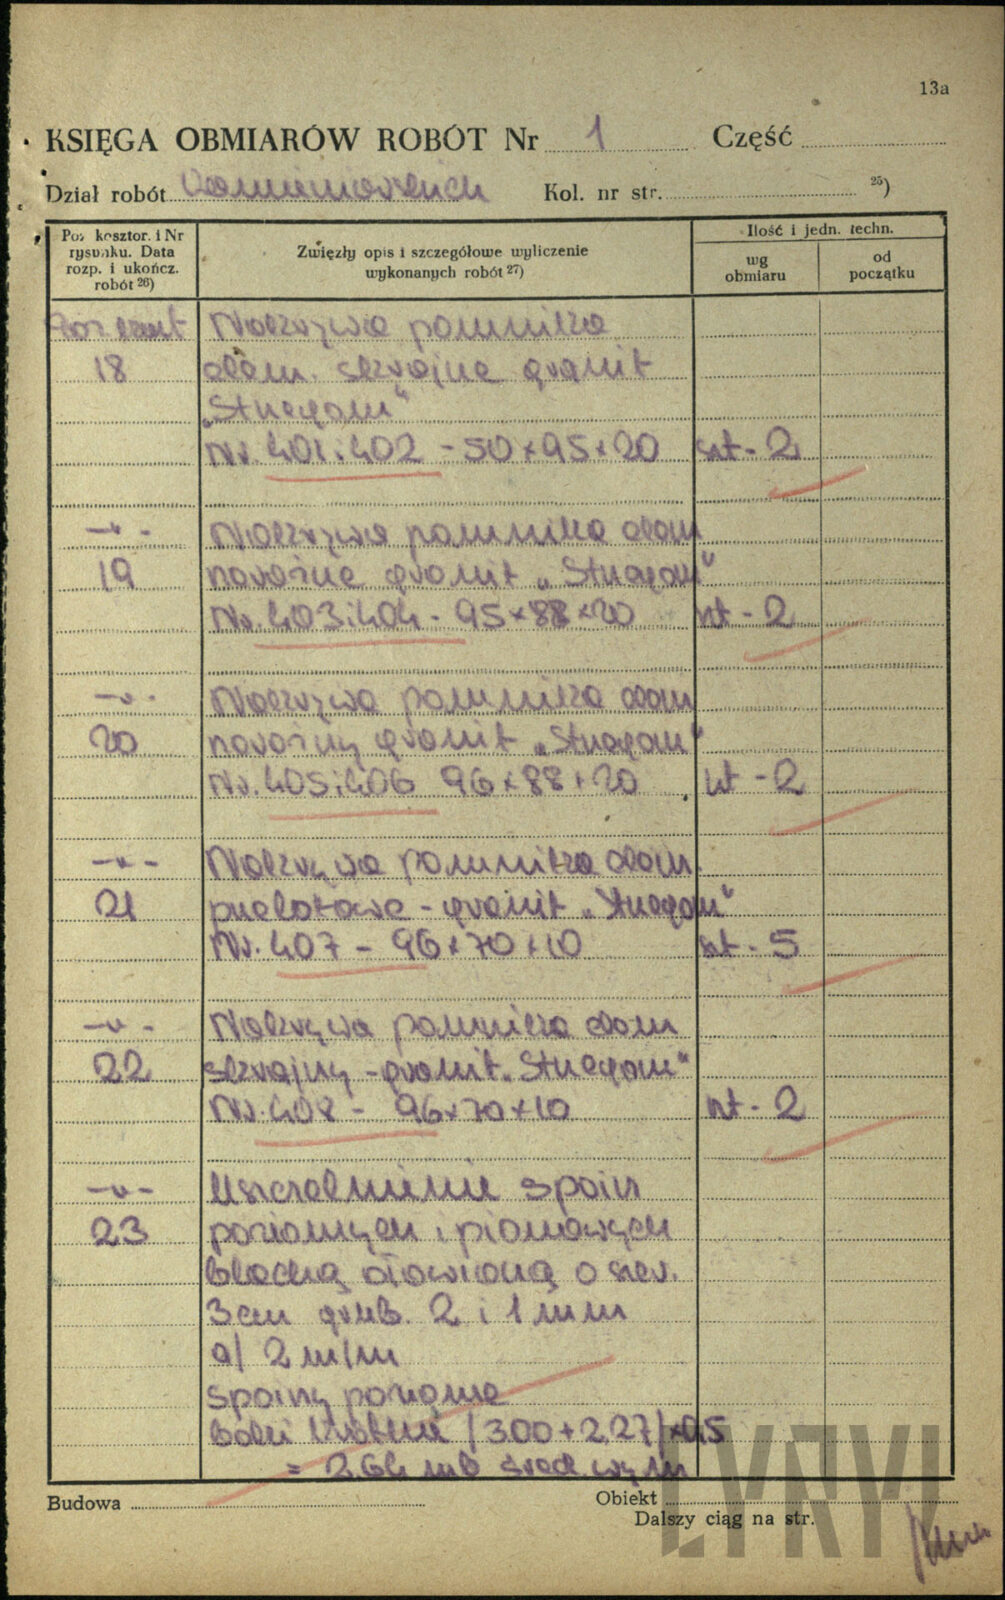 13a
KSIĘGA OBMIARÓW ROBÓT Nr 1 Część
Dział robót Kamieniarskich Kol. nr str. 25)
Poz kosztor. i Nr rysunku. Data rozp. i ukończ. robót 26)
Zwięzły opis i szczegółowe wyliczenie wykonanych robót 27)
Ilość i jedn. techn.
wg obmiaru
od początku
Poz. koszt Nakrywa pomnika
18 elem. skrajne granit
„Strzegom"
Nr. 401 i 402 - 50 x 95 x 20 szt - 2
-"- Nakrywa pomnika elem
19 narożne granit „Strzegom"
Nr. 403 i 404 - 95 x 88 x 20 szt - 2
-"- Nakrywa pomnika elem
20 narożny granit „Strzegom"
Nr. 405 i 406 96 x 88 x 20 szt - 2
-"- Nakrywa pomnika elem.
21 przelotowe - granit „Strzegom"
Nr. 407 - 96 x 70 x 10 szt - 5
-"- Nakrywa pomnika elem
22 skrajny - granit „Strzegom"
Nr. 408 - 96 x 70 x 10 szt - 2
-"- Uszczelnienie spoin
23 poziomych i pionowych
blachą ołowianą o szer.
3 cm grub. 2 i 1 mm
a/ 2 m/m
spoiny poziome
boki /3.00 + 2,27/ x 0,5
= 2,64 mb
Budowa
Obiekt
Dalszy ciąg na str.